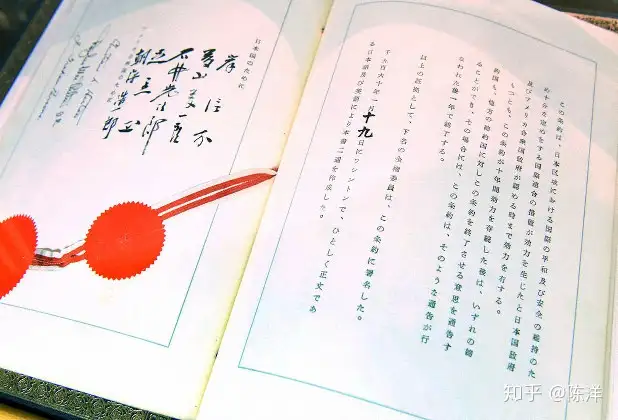 この条約は、日本区域における国際の平和及び安全の維持のた
め十分な定めをする国際連合の措置が効力を生じたと日本国政府
及びアメリカ合衆国政府が認める時まで効力を有する。
もつとも、この条約が十年間効力を存続した後は、いずれの締
約国も、他方の締約国に対しこの条約を終了させる意思を通告す
ることができ、その場合には、この条約は、そのような通告が行
なわれた後一年で終了する。
以上の証拠として、下名の全権委員は、この条約に署名した。
千九百六十年一月十九日にワシントンで、ひとしく正文であ
る日本語及び英語により本書二通を作成した。
日本国のために
岸信介
藤山愛一郎
石井光次郎
足立正
朝海浩一郎
知乎 @陈洋